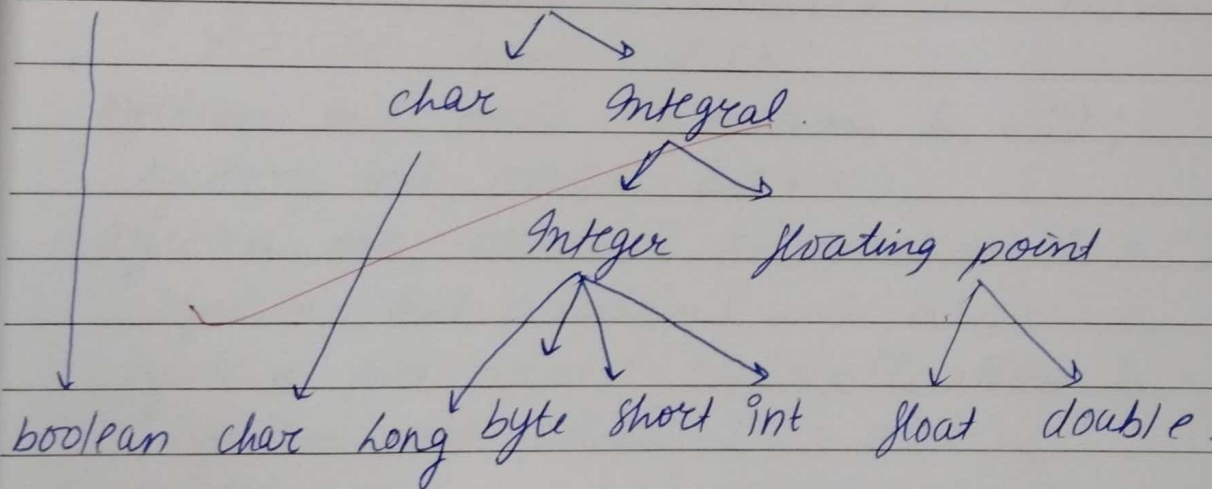 char Integral.
Integer floating point
boolean char Long byte short int float double.